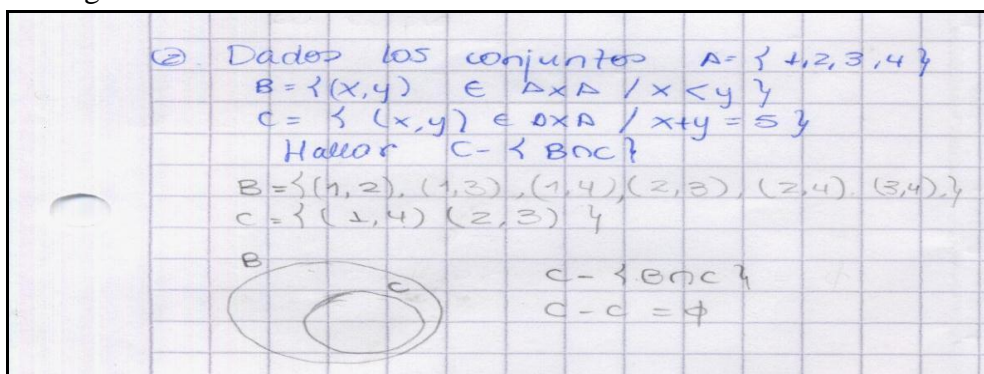 ② Dados los conjuntos A= { 1,2,3,4}
B = {(x,y) ∈ AxA / x < y }
C = { (x,y) ∈ AxA / x+y = 5 }
Hallar C- { B∩C}
B = {(1,2), (1,3), (1,4), (2,3), (2,4). (3,4),}
C = { (1,4) (2,3) }
B
C
C - { B∩C }
C - C = ϕ